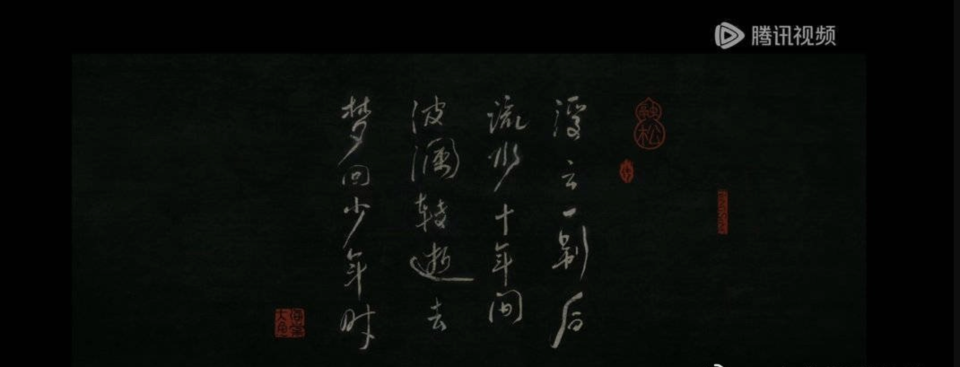 腾讯视频
浮云一别后
流水十年间
波澜转逝去
梦回少年时